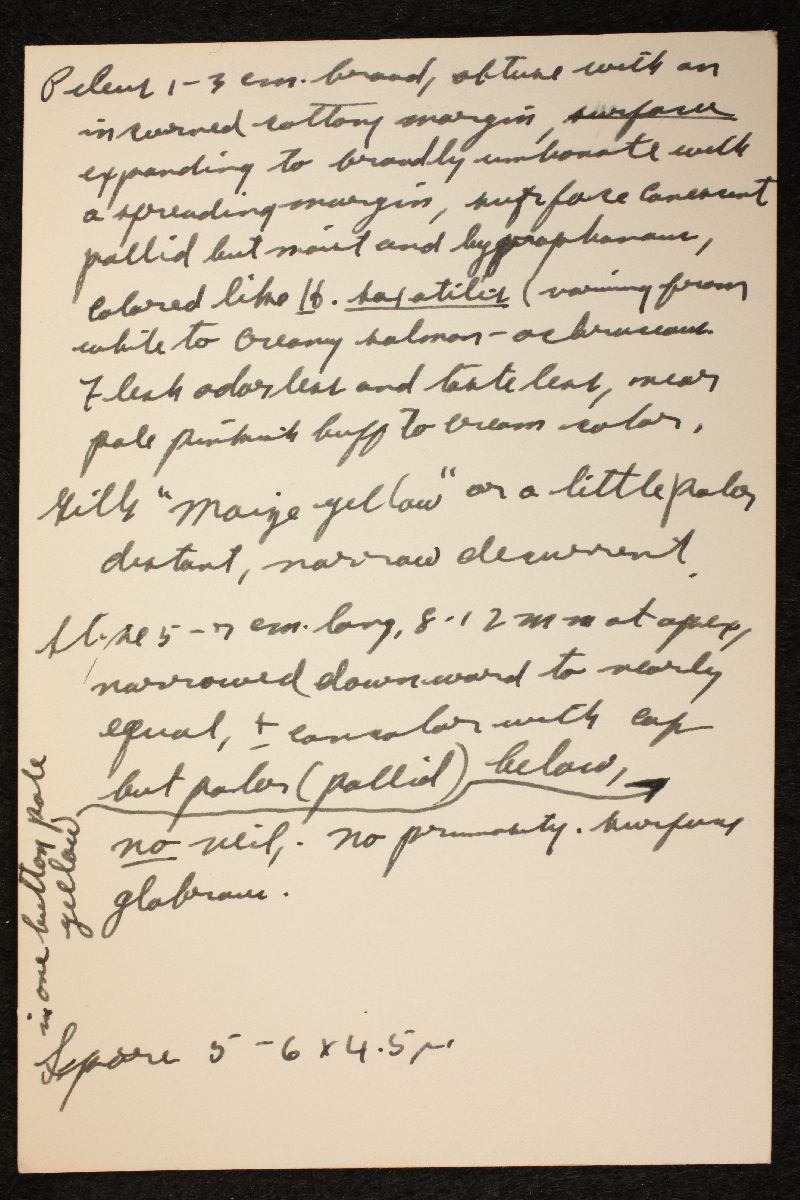 Pileus 1-3 cm. broad, obtuse with an
incurved cottony margin, surface
expanding to broadly umbonate with
a spreading margin, surface canescent
pallid but moist and hygrophanous,
colored like H. saxatilis (varying from
white to creamy salmon-ochraceous.
Flesh odorless and tasteless, near
pale pinkish buff to cream color.
Gills "Maize yellow" or a little paler
distant, narrow decurrent.
Stipe 5-7 cm. long, 8-12 mm at apex,
narrowed downward to nearly
equal, ± concolor with cap
but paler (pallid) below,
no veil, no pruinosity. surface
glabrous.
in one button pale
yellow
Spore 5-6 x 4.5 µ.